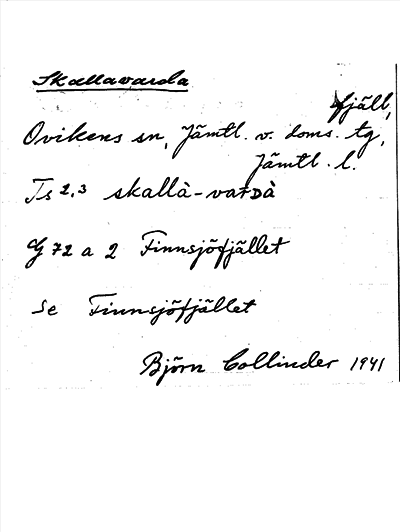 Skallavarda
fjäll,
Ovikens sn, Jämtl. v. doms. tg,
Jämtl. l.
Ts 2.3 skallà-vardà
G 72 a 2 Finnsjöfjället
Se Finnsjöfjället
Björn Collinder 1941